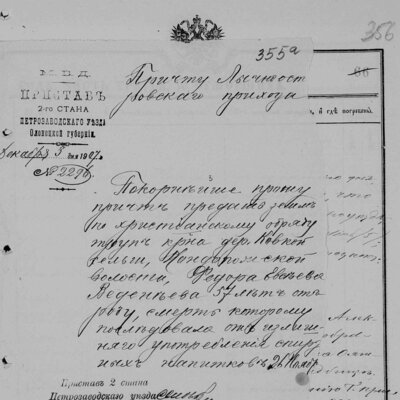 356
355а
М. В. Д.
ПРИСТАВЪ
2-го СТАНА
ПЕТРОЗАВОДСКАГО УѢЗДА
Олонецкой губерніи.
Декабря 5 дня 1907 г.
№ 2296
Причту Лычност
ровскаго прихода
86
и гдѣ погребены.
Покорнѣйше прошу
причтъ предать землѣ
по христіанскому обряду
трупъ кр-на дер.
Кондопожской
волости, Федора
Веденѣева 57 лѣтъ отъ
роду, смерть которому
послѣдовала отъ излиш-
няго употребленія спирт
ныхъ напитковъ 26 Ноябр.
Приставъ 2 стана
Петрозаводскаго уѣзда